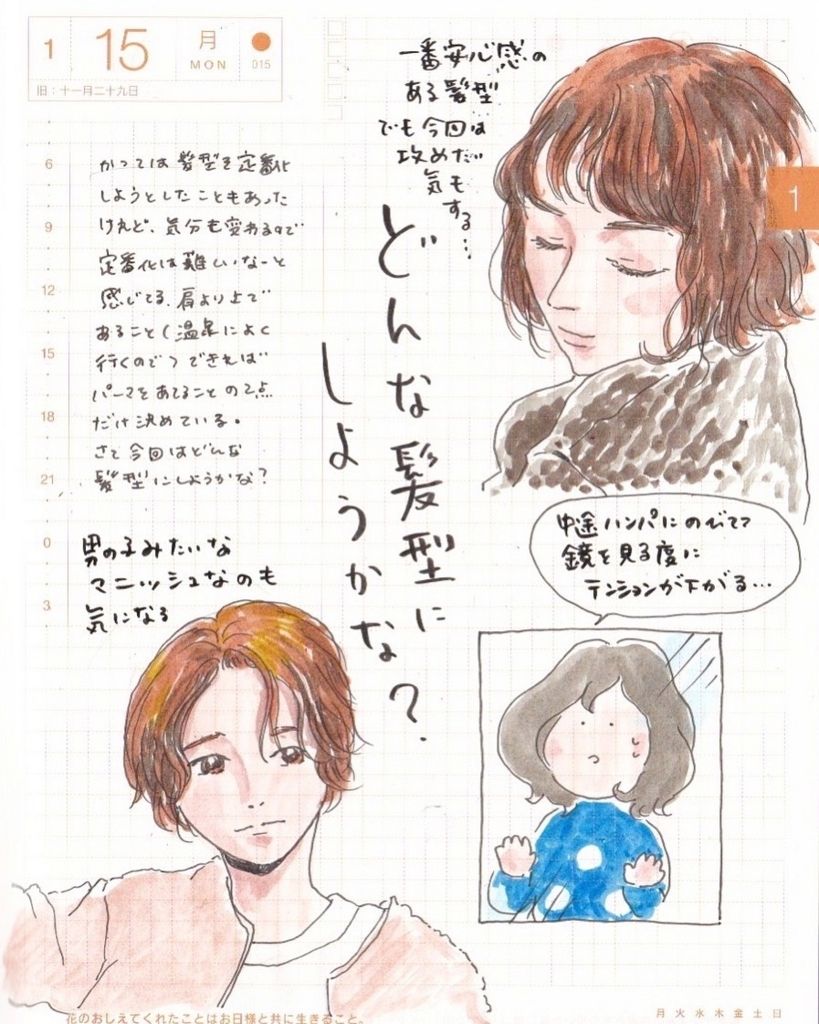 1 15 月 MON 015
旧:十一月二十九日
一番安心感の
ある髪型
でも今回は
攻めたい
気も
する…
かつては髪型を定番化
しようとしたこともあった
けれど、気分も変わるので
定番化は難しいなーと
感じてる。肩より上で
あること(温泉によく
行くので)できれば
パーマをあてることの2点
だけ決めている。
さて今回はどんな
髪型にしようかな?
6
9
12
15
18
21
0
3
どんな髪型に
しようかな?
1
男の子みたいな
マニッシュなのも
気になる
中途ハンパにのびてて
鏡を見る度に
テンションが下がる…
花のおしえてくれたことはお日様と共に生きること。
月 火 水 木 金 土 日